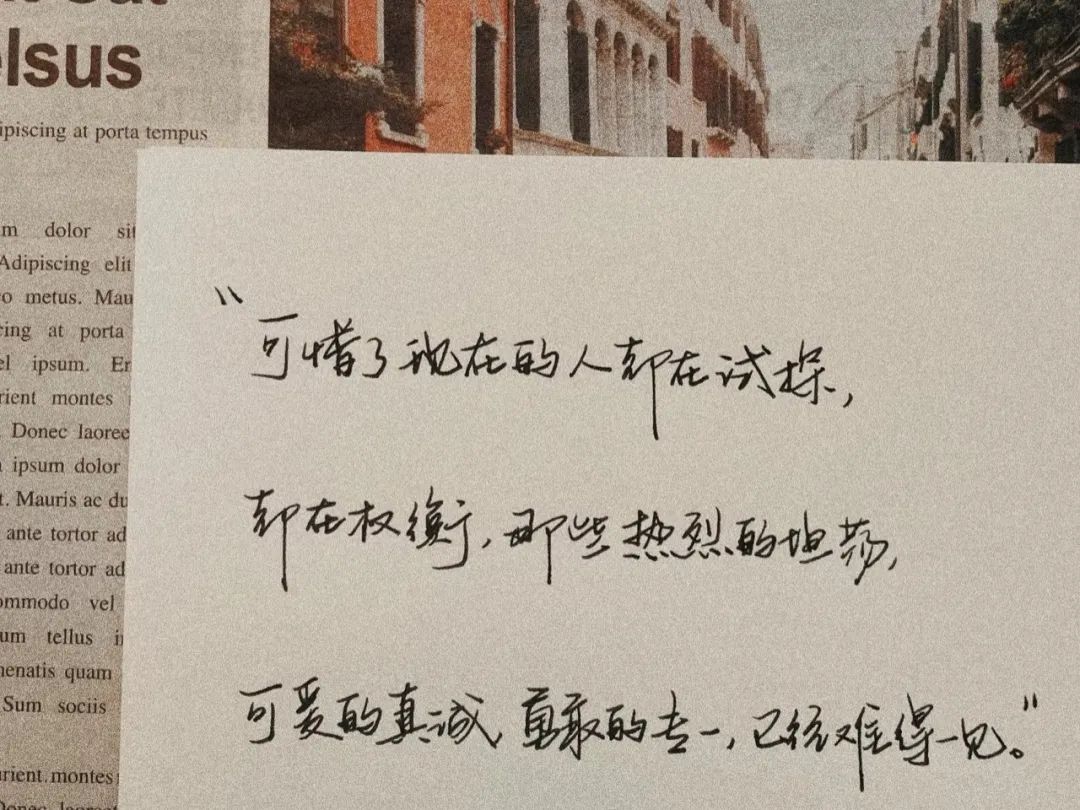 elsus
ipiscing at porta tempus
m dolor sit
Adipiscing elit
o metus. Mau
cing at porta
el ipsum. Er
rient montes
. Donec laoree
ipsum dolor
t. Mauris ac du
ante tortor ad
ante tortor ad
ommodo vel
um tellus i
enatis quam
Sum sociis
urient.montes
Donec laoreet
"可惜了现在的人却在试探,
却在权衡,那些热烈的坦荡,
可爱的真诚、勇敢的专一,已经难得一见。"